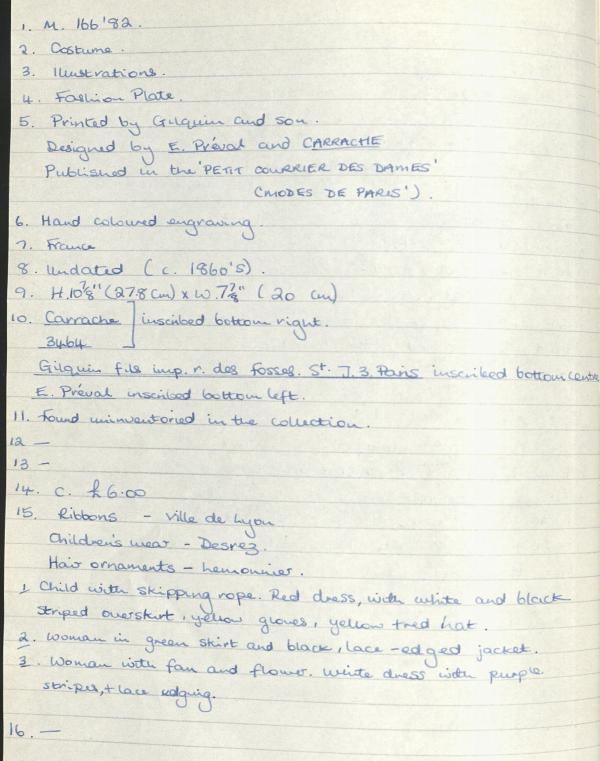 1. M. 166'82.
2. Costume.
3. Illustrations.
4. Fashion Plate.
5. Printed by Gilquin and son.
Designed by E. Préval and CARRACHE
Published in the 'PETIT COURRIER DES DAMES'
(MODES DE PARIS').
6. Hand coloured engraving.
7. France
8. Undated (c. 1860's).
9. H.10⅞" (27.8 cm) x W.7⅞" (20 cm)
10. Carrache ] inscribed bottom right.
3464
Gilquin fils imp. r. des fosses. St. J. 3. Paris inscribed bottom centre
E. Préval inscribed bottom left.
11. Found uninventoried in the collection.
12 —
13 —
14. c. £6.00
15. Ribbons - Ville de Lyon
Children's wear - Desrez.
Hair ornaments - Lemonnier.
1 Child with skipping rope. Red dress, with white and black
striped overskirt, yellow gloves, yellow hat.
2. Woman in green skirt and black, lace-edged jacket.
3. Woman with fan and flower. White dress with purple
stripes, + lace edging.
16. —